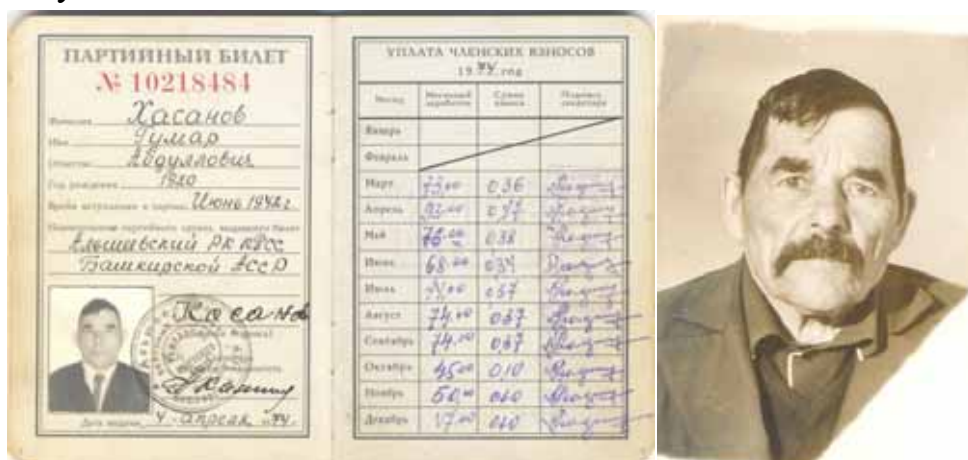 ПАРТИЙНЫЙ БИЛЕТ
№ 10218484
Фамилия Хасанов
Имя Гумар
Отчество Абдуллович
Год рождения 1920
Время вступления в партию Июнь 1942 г
Наименование партийного органа, выдавшего билет
Альшеевский РК КПСС
Башкирской АССР
Хасанов
Дата выдачи 4 апреля 74
УПЛАТА ЧЛЕНСКИХ ВЗНОСОВ
1974 год
Месяц Месячный заработок Сумма взноса Подпись секретаря
Январь
Февраль
Март 73 00 0 36
Апрель
Май 76 00 0 38
Июнь 68 00 0 34
Июль 0 37
Август 74 00 0 37
Сентябрь 74 00 0 37
Октябрь 45 00 0 10
Ноябрь 50 00 0 10
Декабрь 0 10